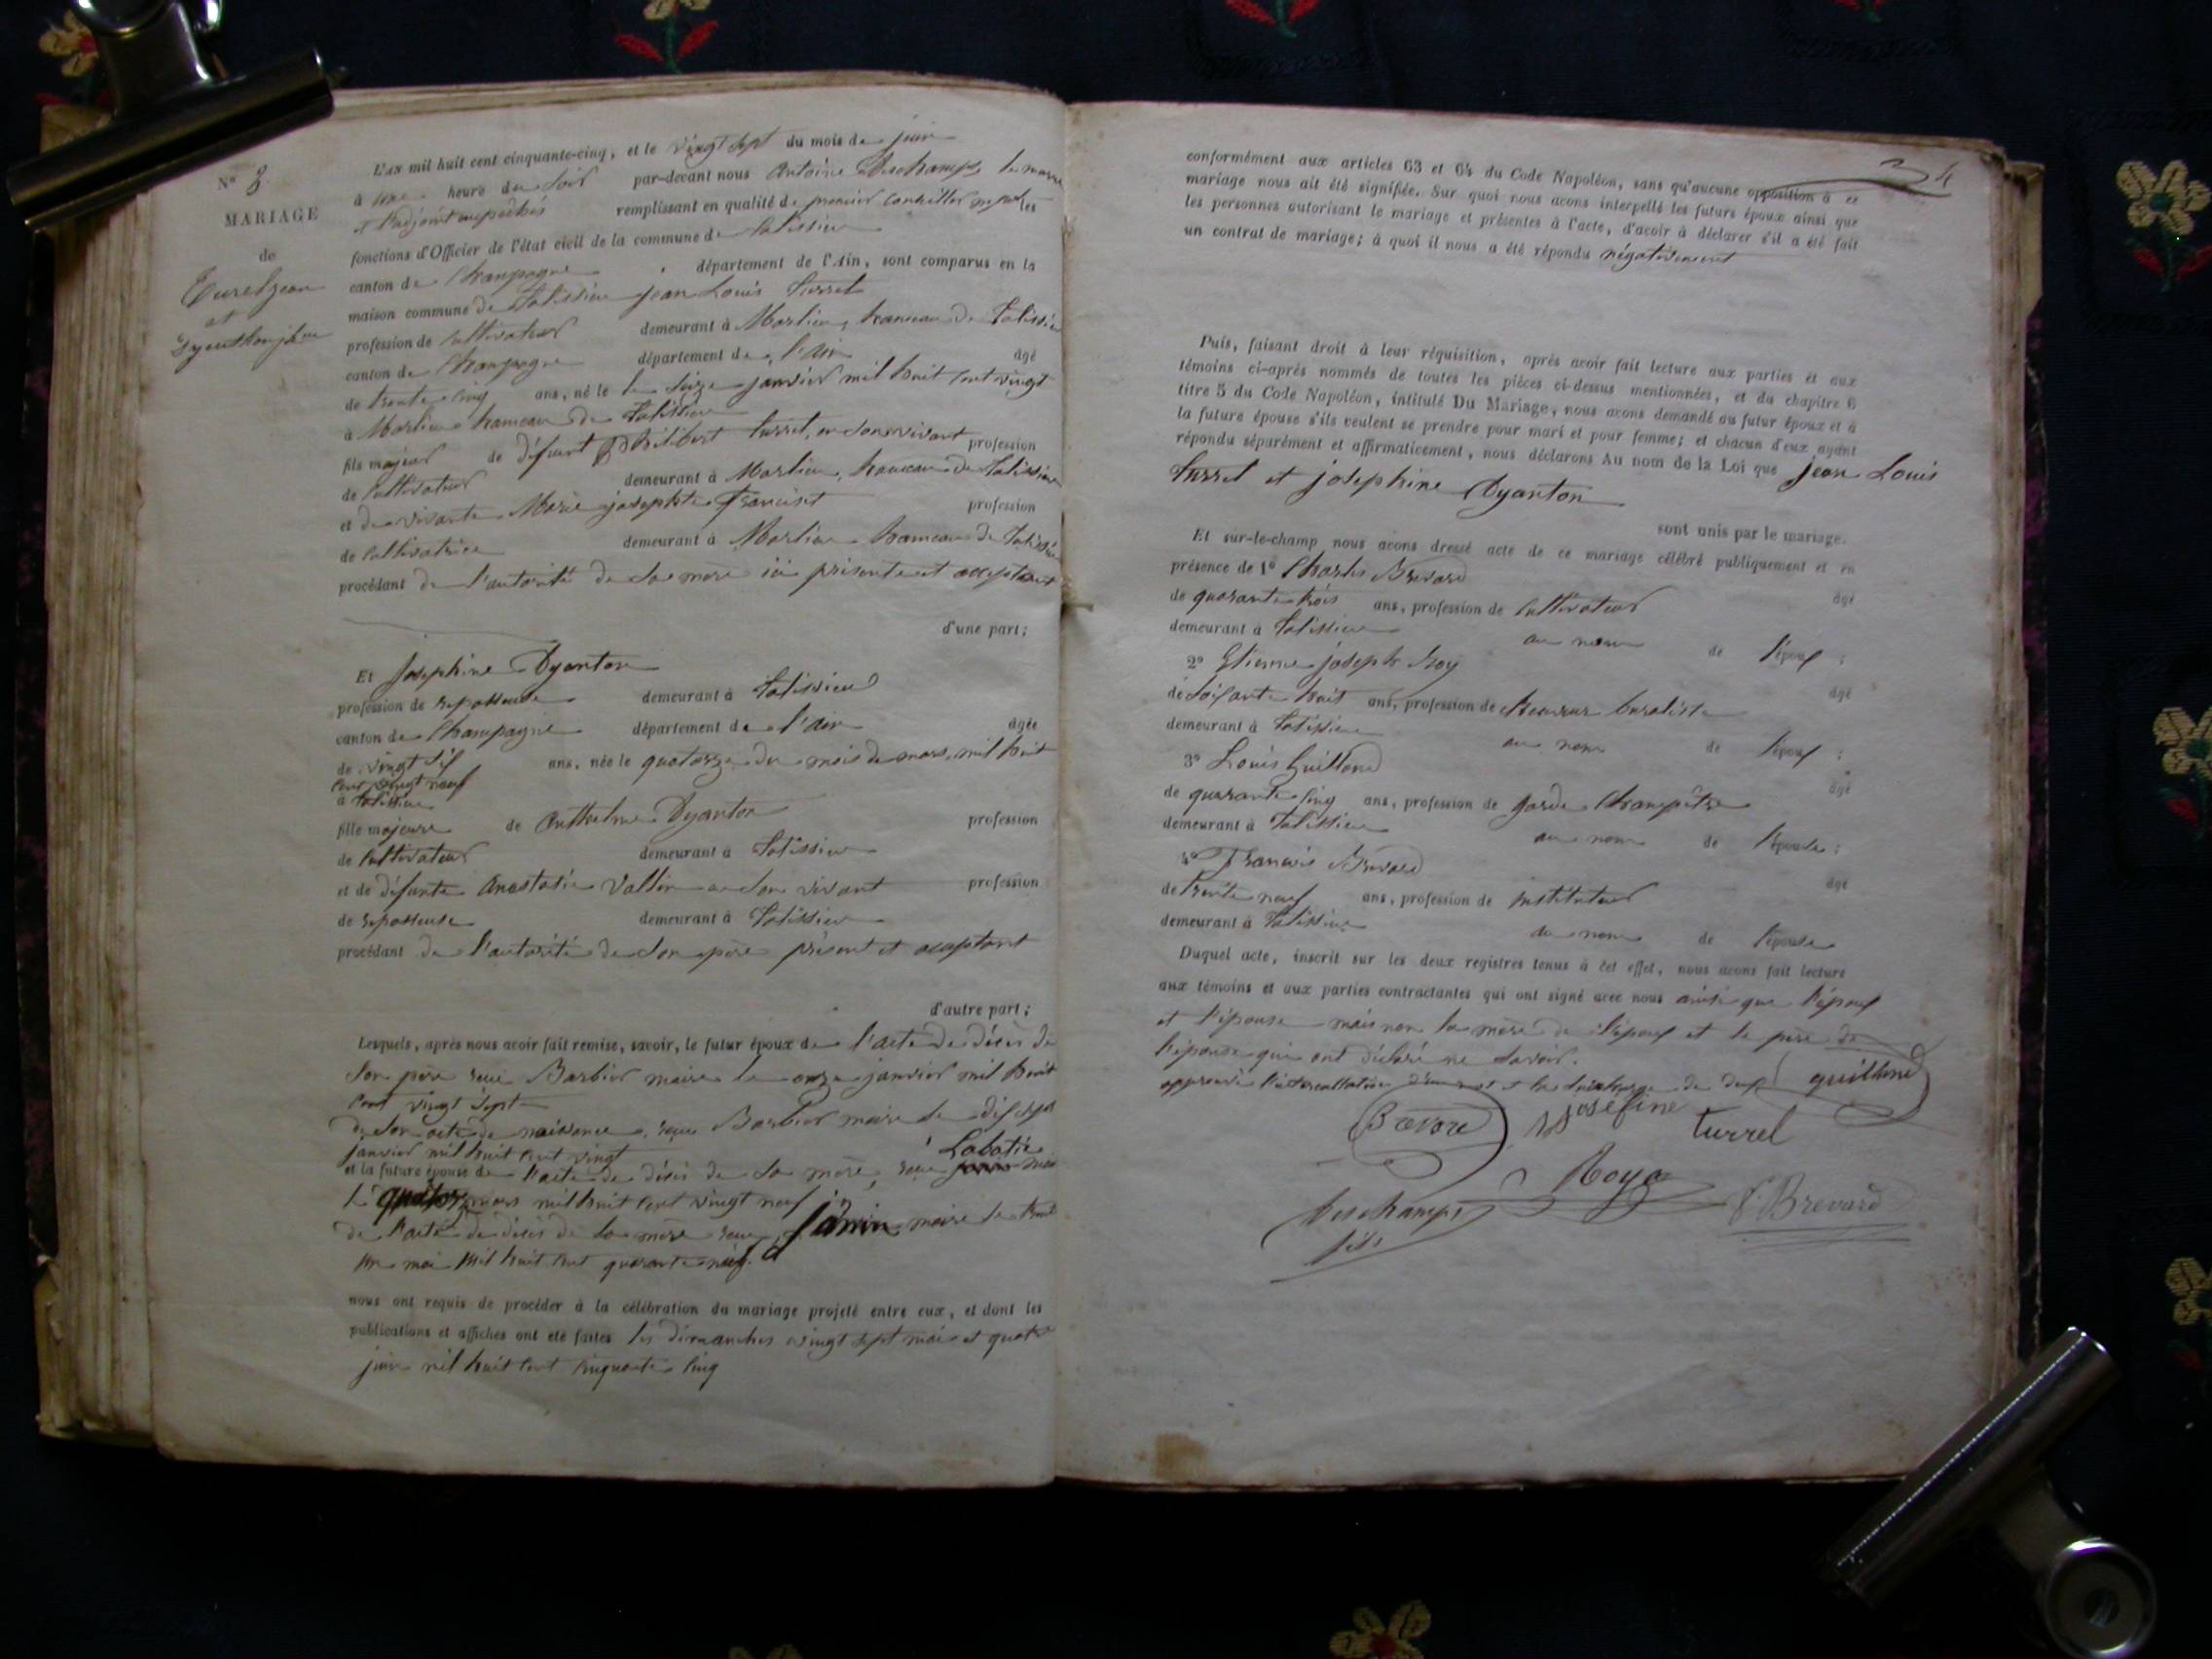 N° 8
MARIAGE
de
Turel jean
et
L'an mil huit cent cinquante-cinq, et le vingt sept du mois de juin
à une heure du soir par-devant nous Antoine Deschamps, le maire
et l'adjoint empêchés remplissant en qualité de premier conseiller les
fonctions d'Officier de l'état civil de la commune de Talissieu
canton de Champagne, département de l'Ain, sont comparus en la
maison commune de Talissieu jean Louis Turrel
profession de cultivateur demeurant à Marlieu, hameau de Talissieu
canton de Champagne département de l'Ain âgé
de trente cinq ans, né le le seize janvier mil huit cent vingt
à Marlieu hameau de Talissieu
fils majeur de défunt Philibert Turrel, en son vivant profession
de cultivateur demeurant à Marlieu, hameau de Talissieu
et de vivante Marie josephte Franciset profession
de cultivatrice demeurant à Marlieu hameau de Talissieu
procédant de l'autorité de sa mère ici présente et acceptant
d'une part;
Et Josephine Dyanton
profession de repasseuse demeurant à Talissieu
canton de Champagne département de l'Ain âgée
de vingt six ans, née le quatorze du mois de mars, mil huit
cent vingt neuf
à Talissieu
fille majeure de Anthelme Dyanton profession
de cultivateur demeurant à Talissieu
et de défunte Anastasie Vallin en son vivant profession
de repasseuse demeurant à Talissieu
procédant de l'autorité de son père présent et acceptant
d'autre part;
Lesquels, après nous avoir fait remise, savoir, le futur époux de l'acte de décès de
son père reçu Barbier maire le onze janvier mil huit
cent vingt sept
de son acte de naissance, reçu Barbier maire le dix sept
janvier mil huit cent vingt
Labatie
et la future épouse de l'acte de décès de sa mère, reçu
le quatorze mars mil huit cent vingt neuf
de l'acte de décès de sa mère reçu janin maire le trente
un mai mil huit cent quarante neuf.
nous ont requis de procéder à la célébration du mariage projeté entre eux, et dont les
publications et affiches ont été faites les dimanches vingt sept mai et quatre
juin mil huit cent cinquante cinq
34
conformément aux articles 63 et 64 du Code Napoléon, sans qu'aucune opposition à ce
mariage nous ait été signifiée. Sur quoi nous avons interpellé les futurs époux ainsi que
les personnes autorisant le mariage et présentes à l'acte, d'avoir à déclarer s'il a été fait
un contrat de mariage; à quoi il nous a été répondu négativement
Puis, faisant droit à leur réquisition, après avoir fait lecture aux parties et aux
témoins ci-après nommés de toutes les pièces ci-dessus mentionnées, et du chapitre 6
titre 5 du Code Napoléon, intitulé Du Mariage, nous avons demandé au futur époux et à
la future épouse s'ils veulent se prendre pour mari et pour femme; et chacun d'eux ayant
répondu séparément et affirmativement, nous déclarons Au nom de la Loi que jean Louis
Turrel et josephine Dyanton
sont unis par le mariage.
Et sur-le-champ nous avons dressé acte de ce mariage célébré publiquement et en
présence de 1° Charles Brevard âgé
de quarante trois ans, profession de cultivateur
demeurant à Talissieu au nom de l'époux;
2° Etienne joseph Roy âgé
de soixante huit ans, profession de Receveur buraliste
demeurant à Talissieu au nom de l'époux;
3° Louis Guillond âgé
de quarante cinq ans, profession de garde champêtre
demeurant à Talissieu au nom de l'épouse;
4° Francois Brevard âgé
de trente neuf ans, profession de instituteur
demeurant à Talissieu au nom de l'épouse
Duquel acte, inscrit sur les deux registres tenus à cet effet, nous avons fait lecture
aux témoins et aux parties contractantes qui ont signé avec nous ainsi que l'époux
et l'épouse mais non la mère de l'époux et le père de
l'épouse qui ont déclaré ne savoir.
approuvé l'intercallation d'un mot et la surcharge de deux
guillond
Brevard
joséfine Turrel
Roy
Deschamps
fils
F. Brevard